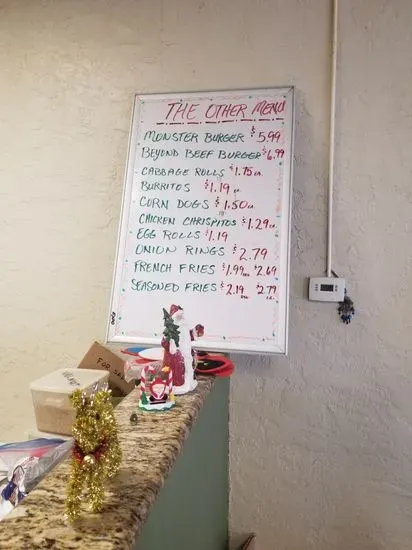 THE OTHER MENU
MONSTER BURGER $5.99
BEYOND BEEF BURGER $6.99
CABBAGE ROLLS $1.75 EA.
BURRITOS $1.19 EA.
CORN DOGS $1.50 EA.
CHICKEN CHRISPITOS $1.29 EA.
EGG ROLLS $1.19
ONION RINGS $2.79
FRENCH FRIES $1.99 REG. $2.69
SEASONED FRIES $2.19 REG. $2.79 LG.
FOR SA